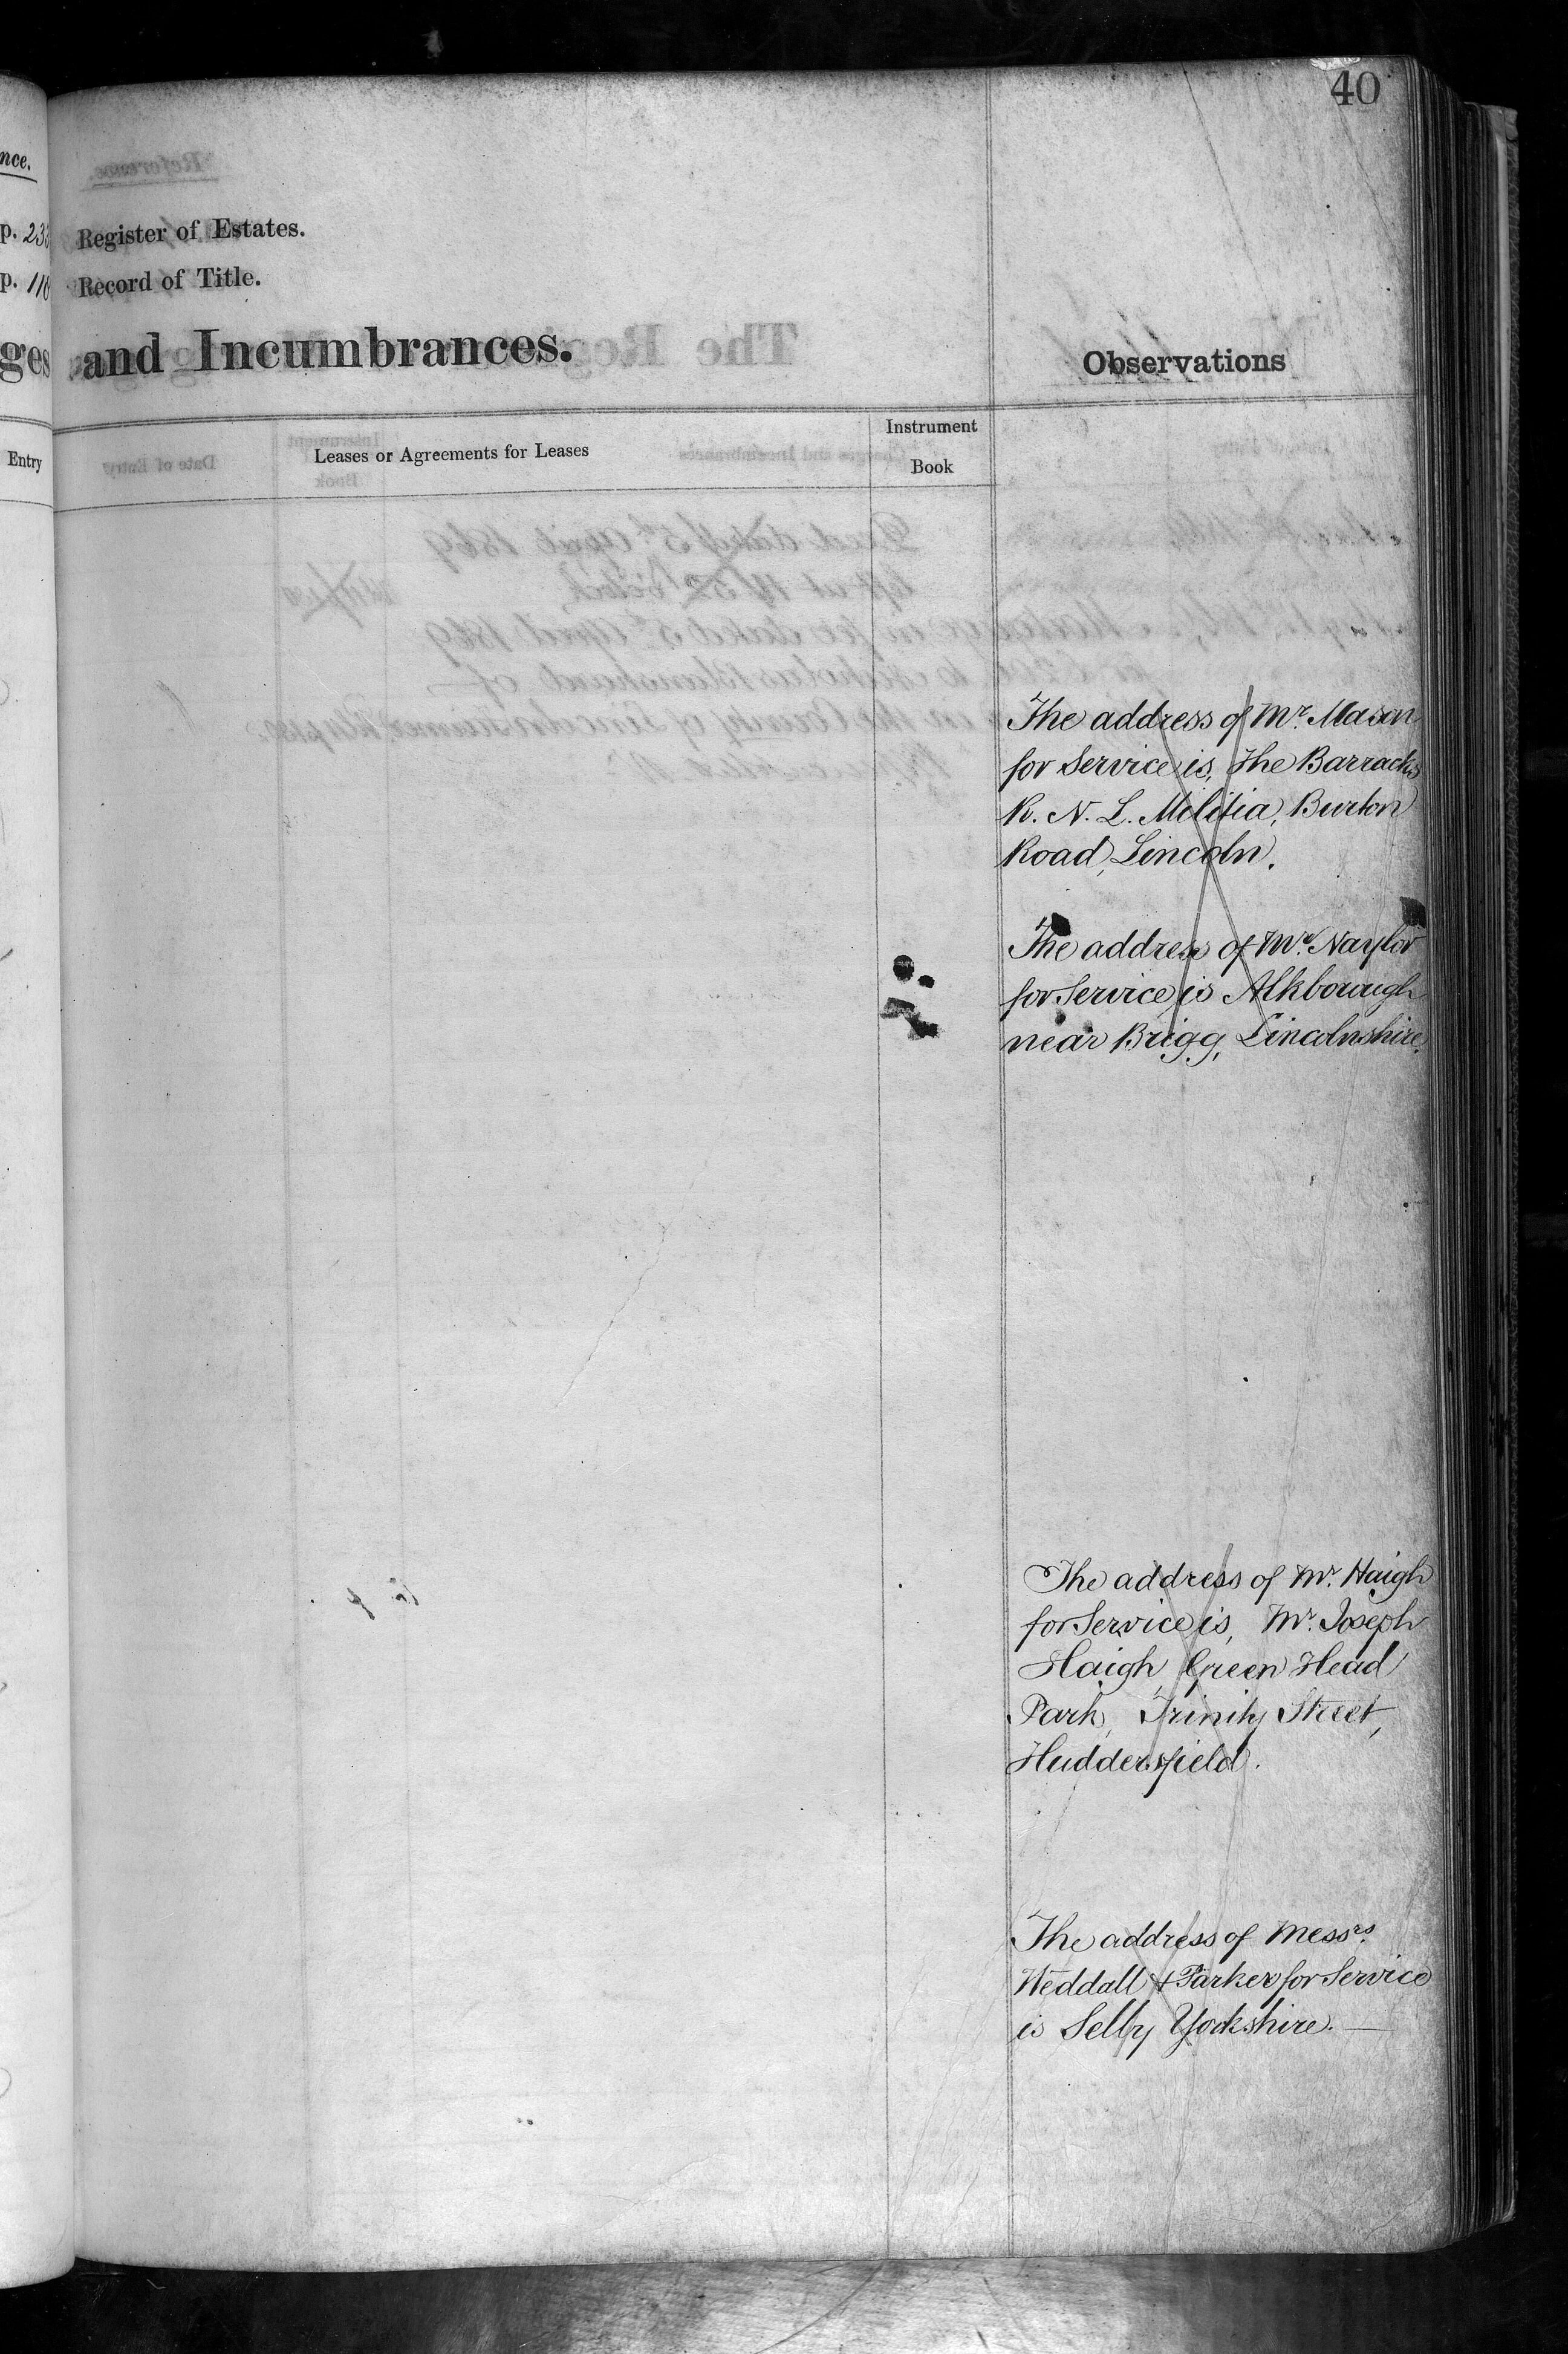 40
nce.
p. 233 Register of Estates.
p. 116 Record of Title.
ges and Incumbrances.
Observations
Entry
Leases or Agreements for Leases
Instrument
Book
The address of Mr. Mason
for Service is, The Barracks
R. N. L. Militia, Burton
Road, Lincoln.
The address of Mr. Naylor
for Service is Alkborough
near Brigg, Lincolnshire.
The address of Mr. Haigh
for Service is, Mr. Joseph
Haigh, Green Head
Park, Trinity Street,
Huddersfield.
The address of Messrs.
Weddall & Parker for Service
is Selby Yorkshire.